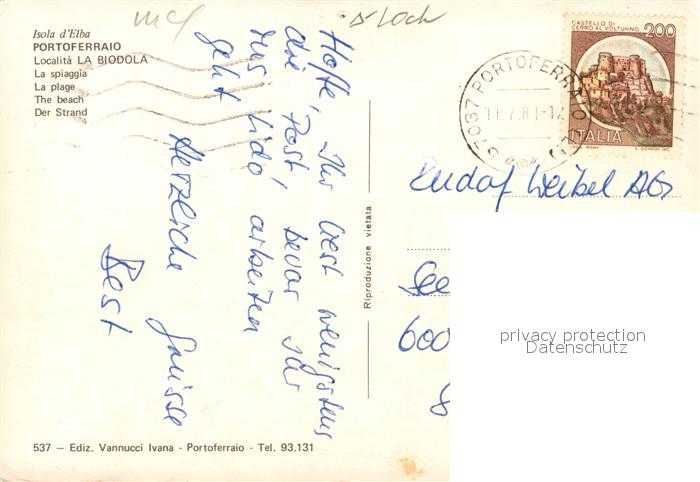 Isola d'Elba
PORTOFERRAIO
Località LA BIODOLA
La spiaggia
La plage
The beach
Der Strand
Hoffe, Ihr liest wenigstens
die 'Post', bevor Ihr
ins 'Lido' arbeiten
geht
Herzliche Grüsse
Best
Riproduzione vietata
CASTELLO DI
CERRO AL VOLTURNO
200
ITALIA
57037 PORTOFERRAIO
11.7.81-12
Rudolf Weibel AG
See
600
privacy protection
Datenschutz
537 — Ediz. Vannucci Ivana - Portoferraio - Tel. 93.131